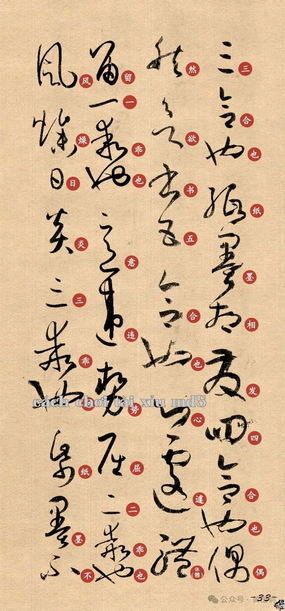 三合也纸墨相发四合也偶
然欲书五合也心遽体
留一乖也意违势屈二乖也
风燥日炎三乖也纸墨不
cach choi tai xiu md5
公众号
33